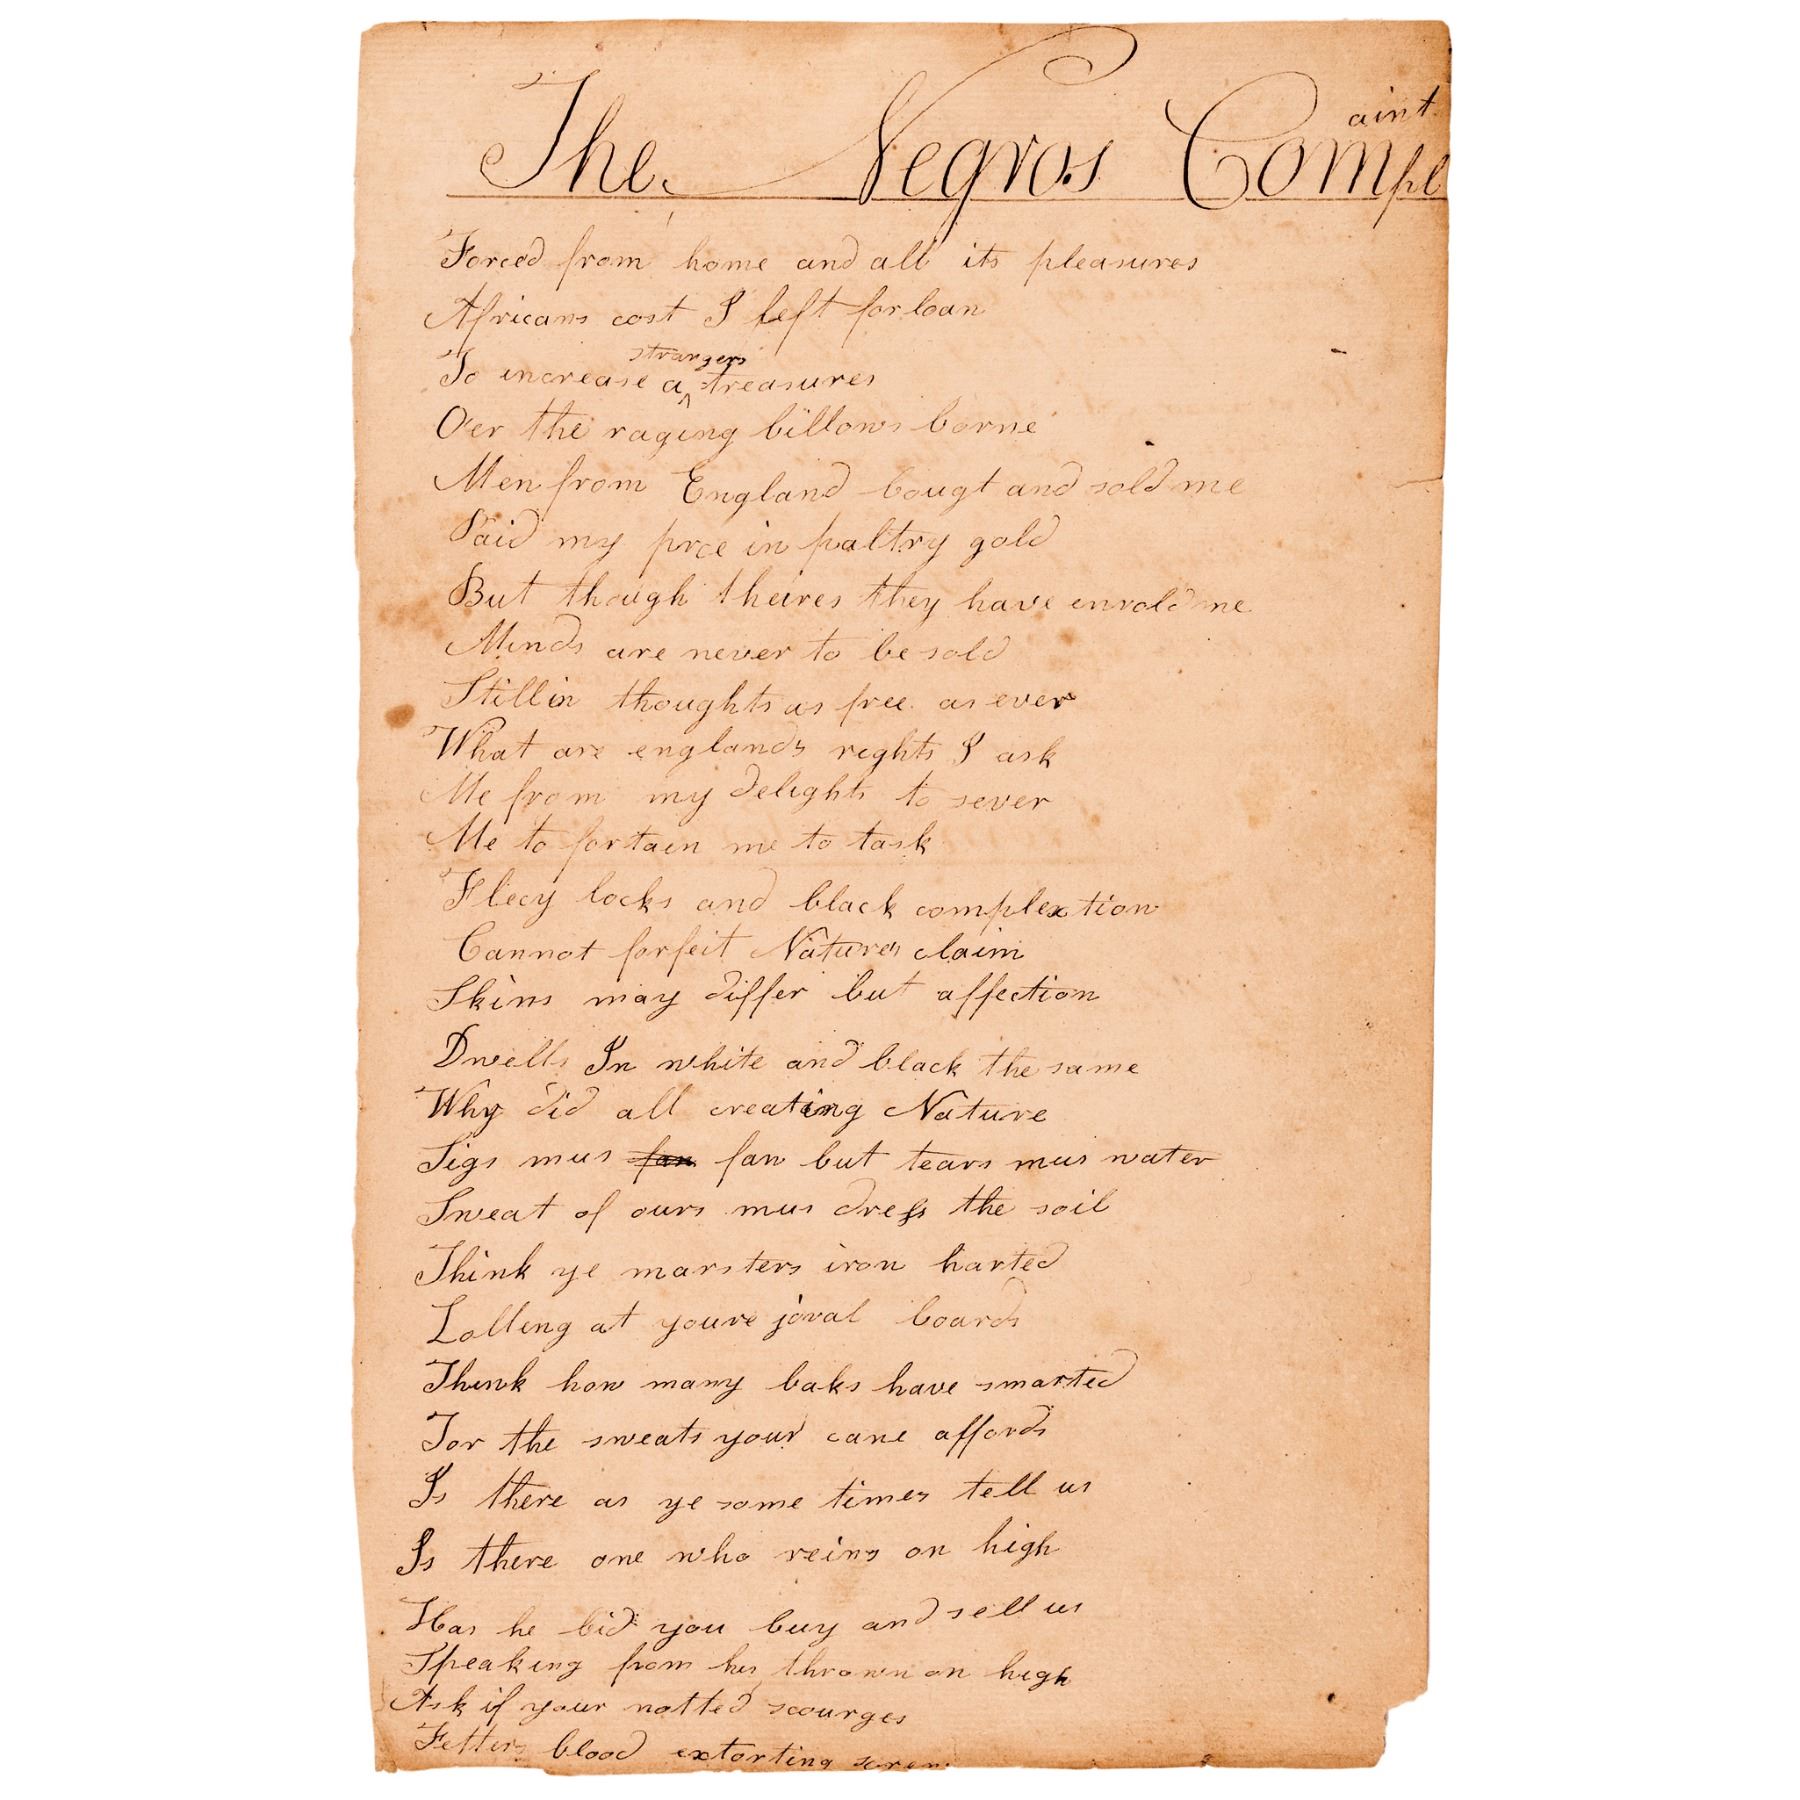 The Negros Complaint
Forced from home and all its pleasures
Africans cost I left forloan
To increase a strangers treasures
O'er the raging billows borne
Men from England bougt and sold me
Paid my prce in paltry gold
But though theires they have enrold me
Minds are never to be sold
Still in thoughts as free as ever
What are englands reghts I ask
Me from my delights to sever
Me to fortain me to task
Flecy locks and black complextion
Cannot forfeit Natures claim
Skins may differ but affection
Dwells In white and black the same
Why did all creating Nature
Sigs mus fan fan but tears mus water
Sweat of ours mus dress the soil
Think ye marsters iron harted
Lolling at youre joval boards
Think how many baks have smarted
For the sweats your cane affords
Is there as ye some times tell us
Is there one who reins on high
Has he bid you buy and sell us
Speaking from his thrown on high
Ask if your notted scourges
Fetters blood extorting